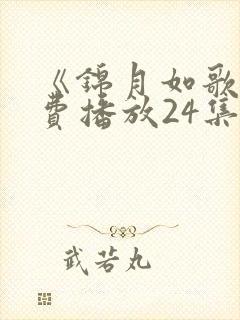 《锦月如歌
费播放24集
武若丸